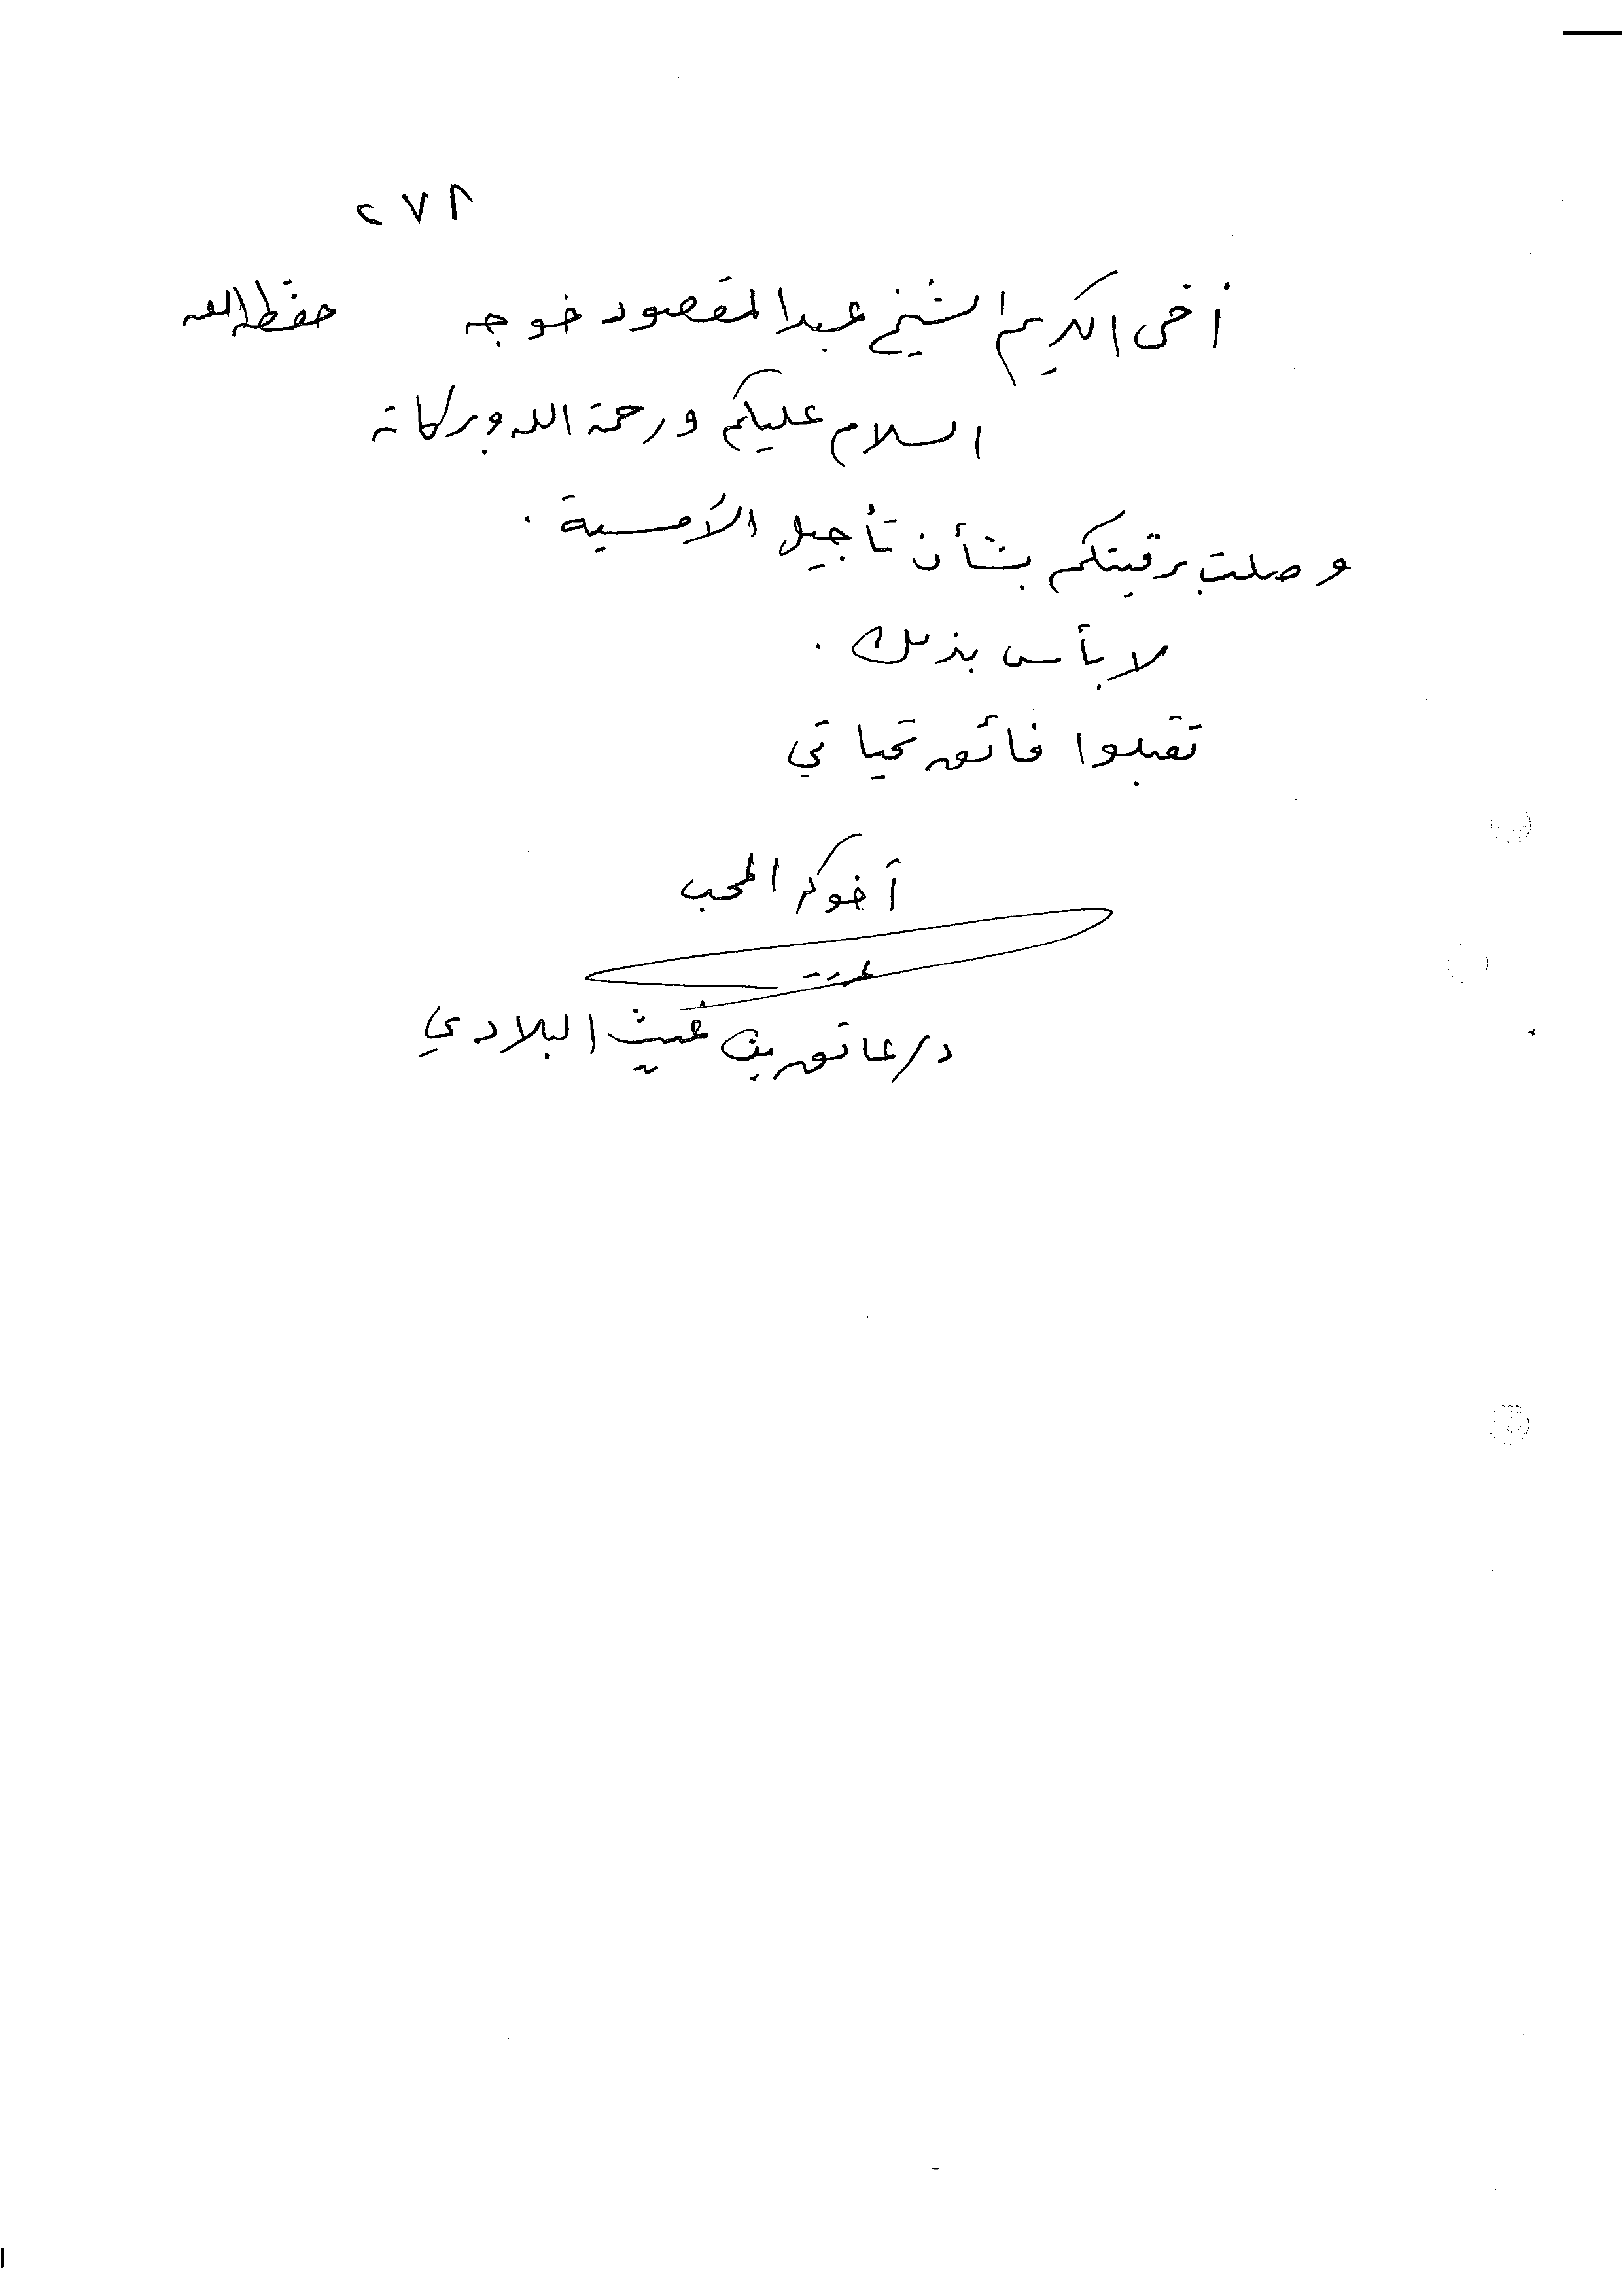 أخي الكريم الشيخ عبدالمقصود خوجه حفظه الله
السلام عليكم ورحمة الله وبركاته
وصلت برقيتكم بشأن تأجيل الأمسية .
لا بأس بذلك .
تقبلوا فائق تحياتي
أخوكم المحب
د/عاتق بن غيث البلادي